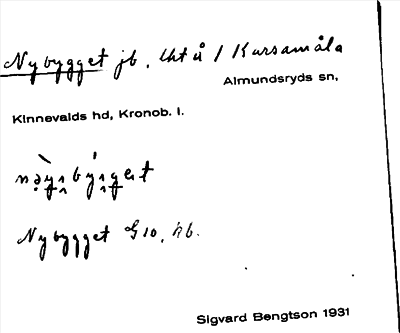 Nybygget jb. lht å / Kursamåla
Almundsryds sn,
Kinnevalds hd, Kronob. l.
Nybygget G 10, hb.
Sigvard Bengtson 1931